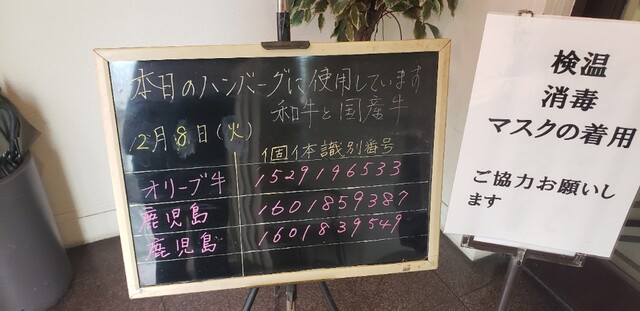 本日のハンバーグに使用しています
和牛と国産牛
2月8日(火)
個体識別番号
オリーブ牛 1529196533
鹿児島 1601859387
鹿児島 1601839549
検温
消毒
マスクの着用
ご協力お願いし
ます